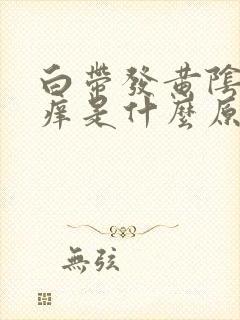 白帶發黄陰
痒是什麼原
無弦